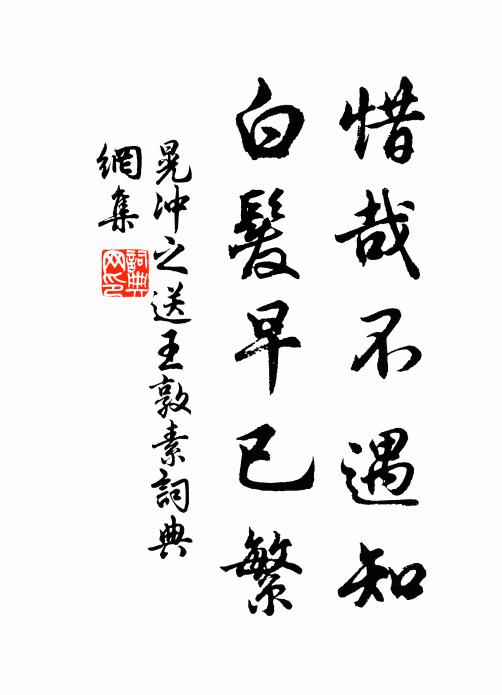 惜哉不遇知
白髮早已繁
晁沖之送王敦素詞典
網集
詞典
网印